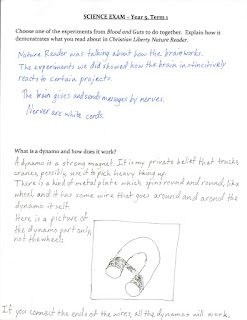 SCIENCE EXAM – Year 5, Term 1
Choose one of the experiments from Blood and Guts to do together. Explain how it
demonstrates what you read about in Christian Liberty Nature Reader.
Nature Reader was talking about how the brain works.
The experiments we did showed how the brain instinctively
reacts to certain projects.
The brain gives and sends messages by nerves.
Nerver are white cords.
What is a dynamo and how does it work?
A dynamo is a strong magnet. It is my private belief that trucks,
cranes, possibly, use it to pick heavy thing up.
There is a kind of metal plate which spins round and round, like
wheel, and it has some wire that goes around and around the
dynamo it self.
Here is a picture of
the dynamo part only,
not the wheels
If you connect the ends of the wires, all the dynamos will work.